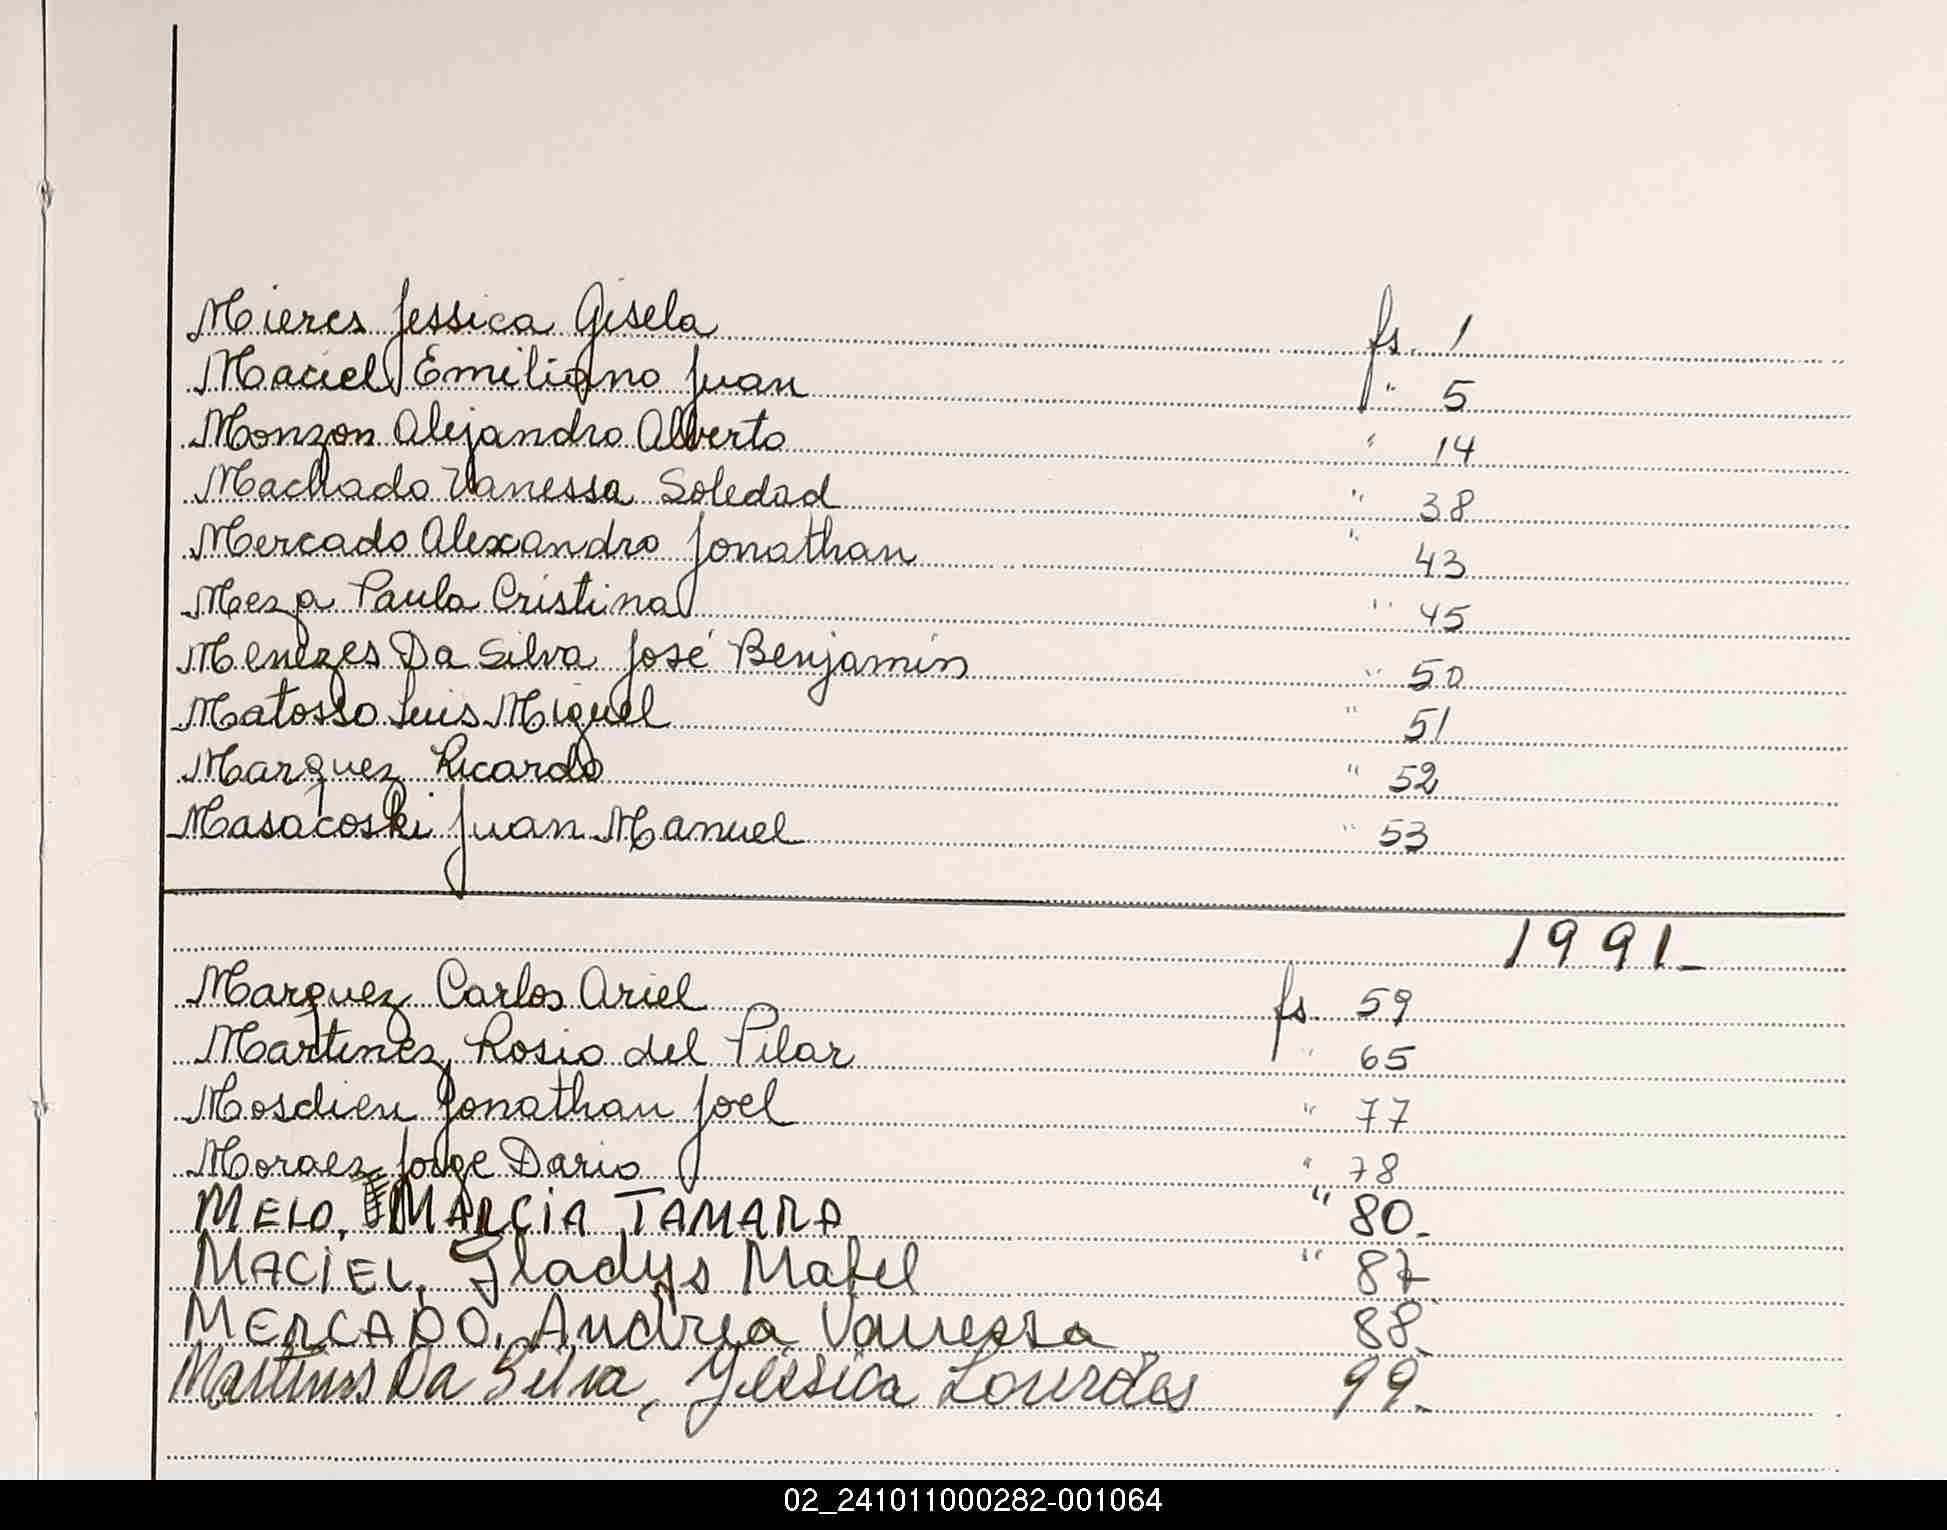 Mieres Jessica Gisela fs. 1
Maciel Emiliano Juan " 5
Monzon Alejandro Alberto " 14
Machado Vanessa Soledad " 38
Mercado Alexandro Jonathan " 43
Meza Paula Cristina " 45
Menezes Da Silva José Benjamín " 50
Matosso Luis Miguel " 51
Marquez Ricardo " 52
Masacoski Juan Manuel " 53
1991_
Marquez Carlos Ariel fs. 59
Martinez, Rosio del Pilar " 65
Mosdien Jonathan Joel " 77
Moraez Jorge Dario " 78
MELO, MARCIA TAMARA " 80_
MACIEL, Gladys Mabel " 87
MERCADO, Andrea Vanessa 88
Martins Da Silva, Yéssica Lourdes 99_
02_241011000282-001064